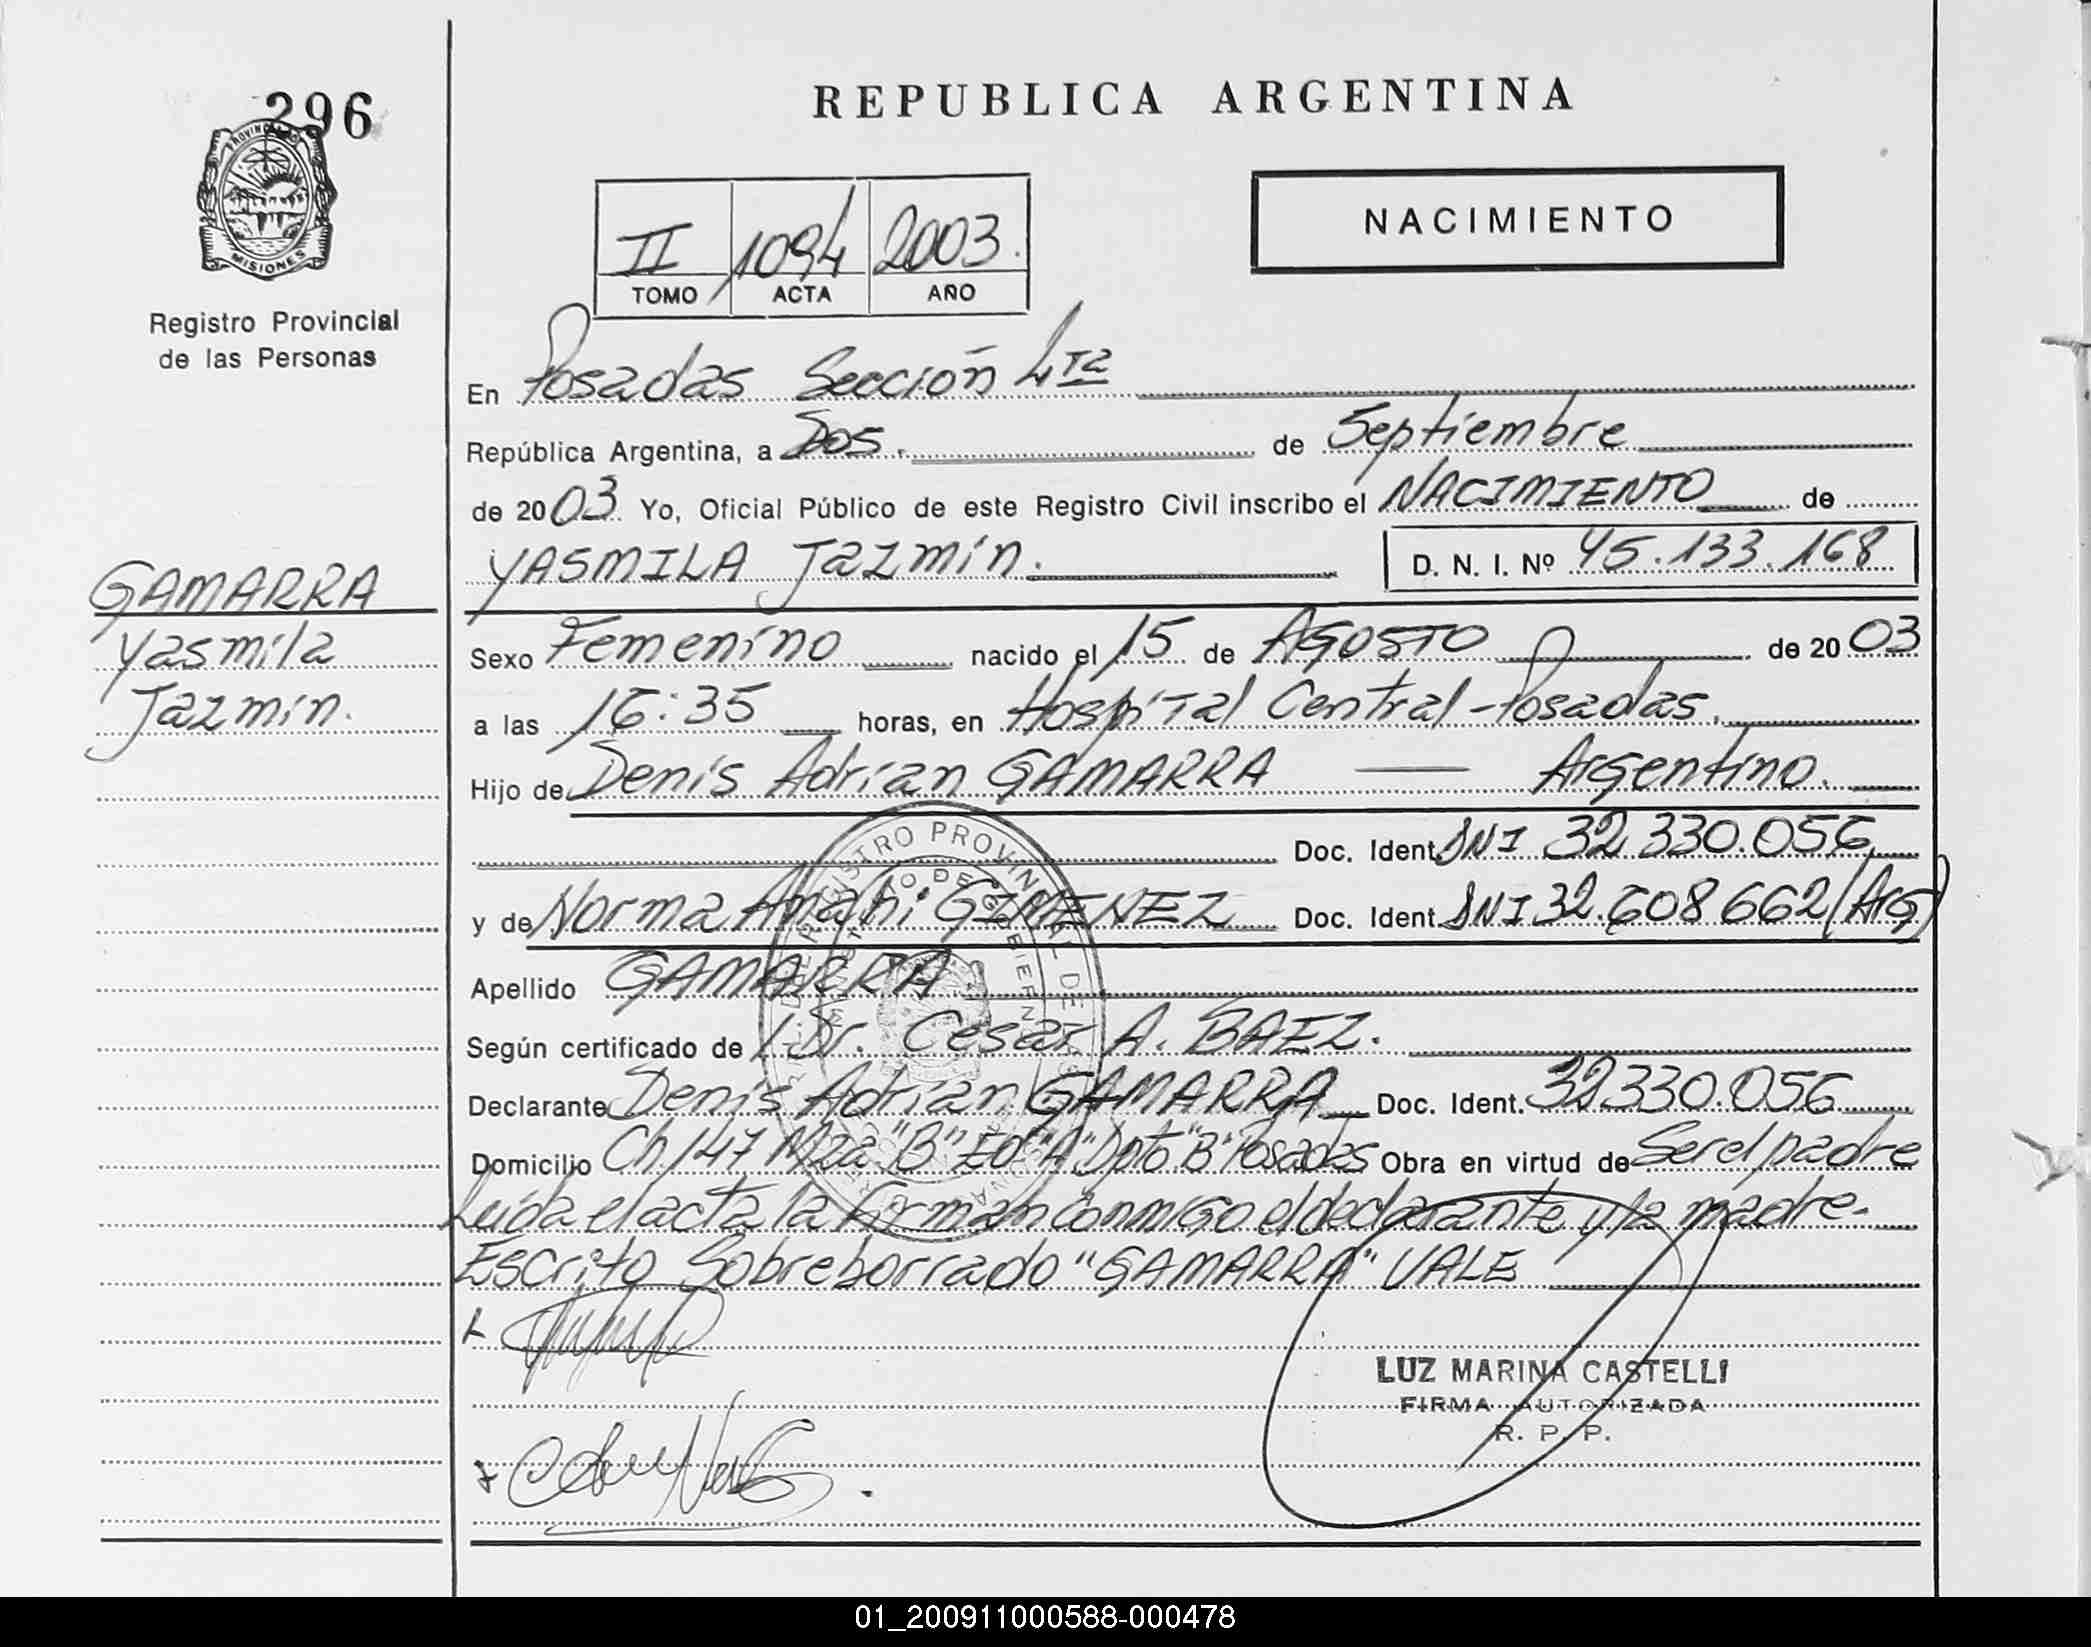 296
REPUBLICA ARGENTINA
PROVINCIA DE MISIONES
Registro Provincial
de las Personas
NACIMIENTO
II 1094 2003.
TOMO ACTA AÑO
En Posadas Sección 4ta
República Argentina, a Dos. de Septiembre
de 2003 Yo, Oficial Público de este Registro Civil inscribo el NACIMIENTO de
YASMILA Jazmín. D. N. I. Nº 45.133.168
GAMARRA
Yasmila
Jazmín.
Sexo Femenino nacido el 15 de AGOSTO de 2003
a las 16:35 horas, en Hospital Central - Posadas.
Hijo de Denis Adrian GAMARRA — Argentino.
Doc. Ident. DNI 32.330.056
y de Norma Anahi GIMENEZ Doc. Ident. DNI 32.608.662 (Arg)
Apellido GAMARRA
Según certificado de Dr. Cesar A. BAEZ.
Declarante Denis Adrian GAMARRA Doc. Ident. 32.330.056
Domicilio Ch 147 Mza "B" Ed "A" Dpto "B" Posadas Obra en virtud de Ser el padre
Leída el acta la firman conmigo el declarante y la madre.
Escrito Sobreborrado "GAMARRA" VALE
LUZ MARINA CASTELLI
FIRMA AUTORIZADA
R. P. P.
01_200911000588-000478